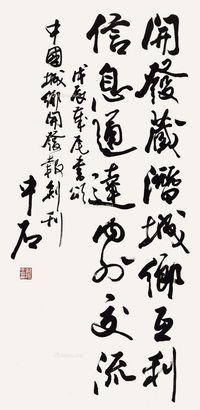 開發藏潛城鄉互利
信息通達内外交流
戊辰年尾書頌
中國城鄉開發報創刊
中石